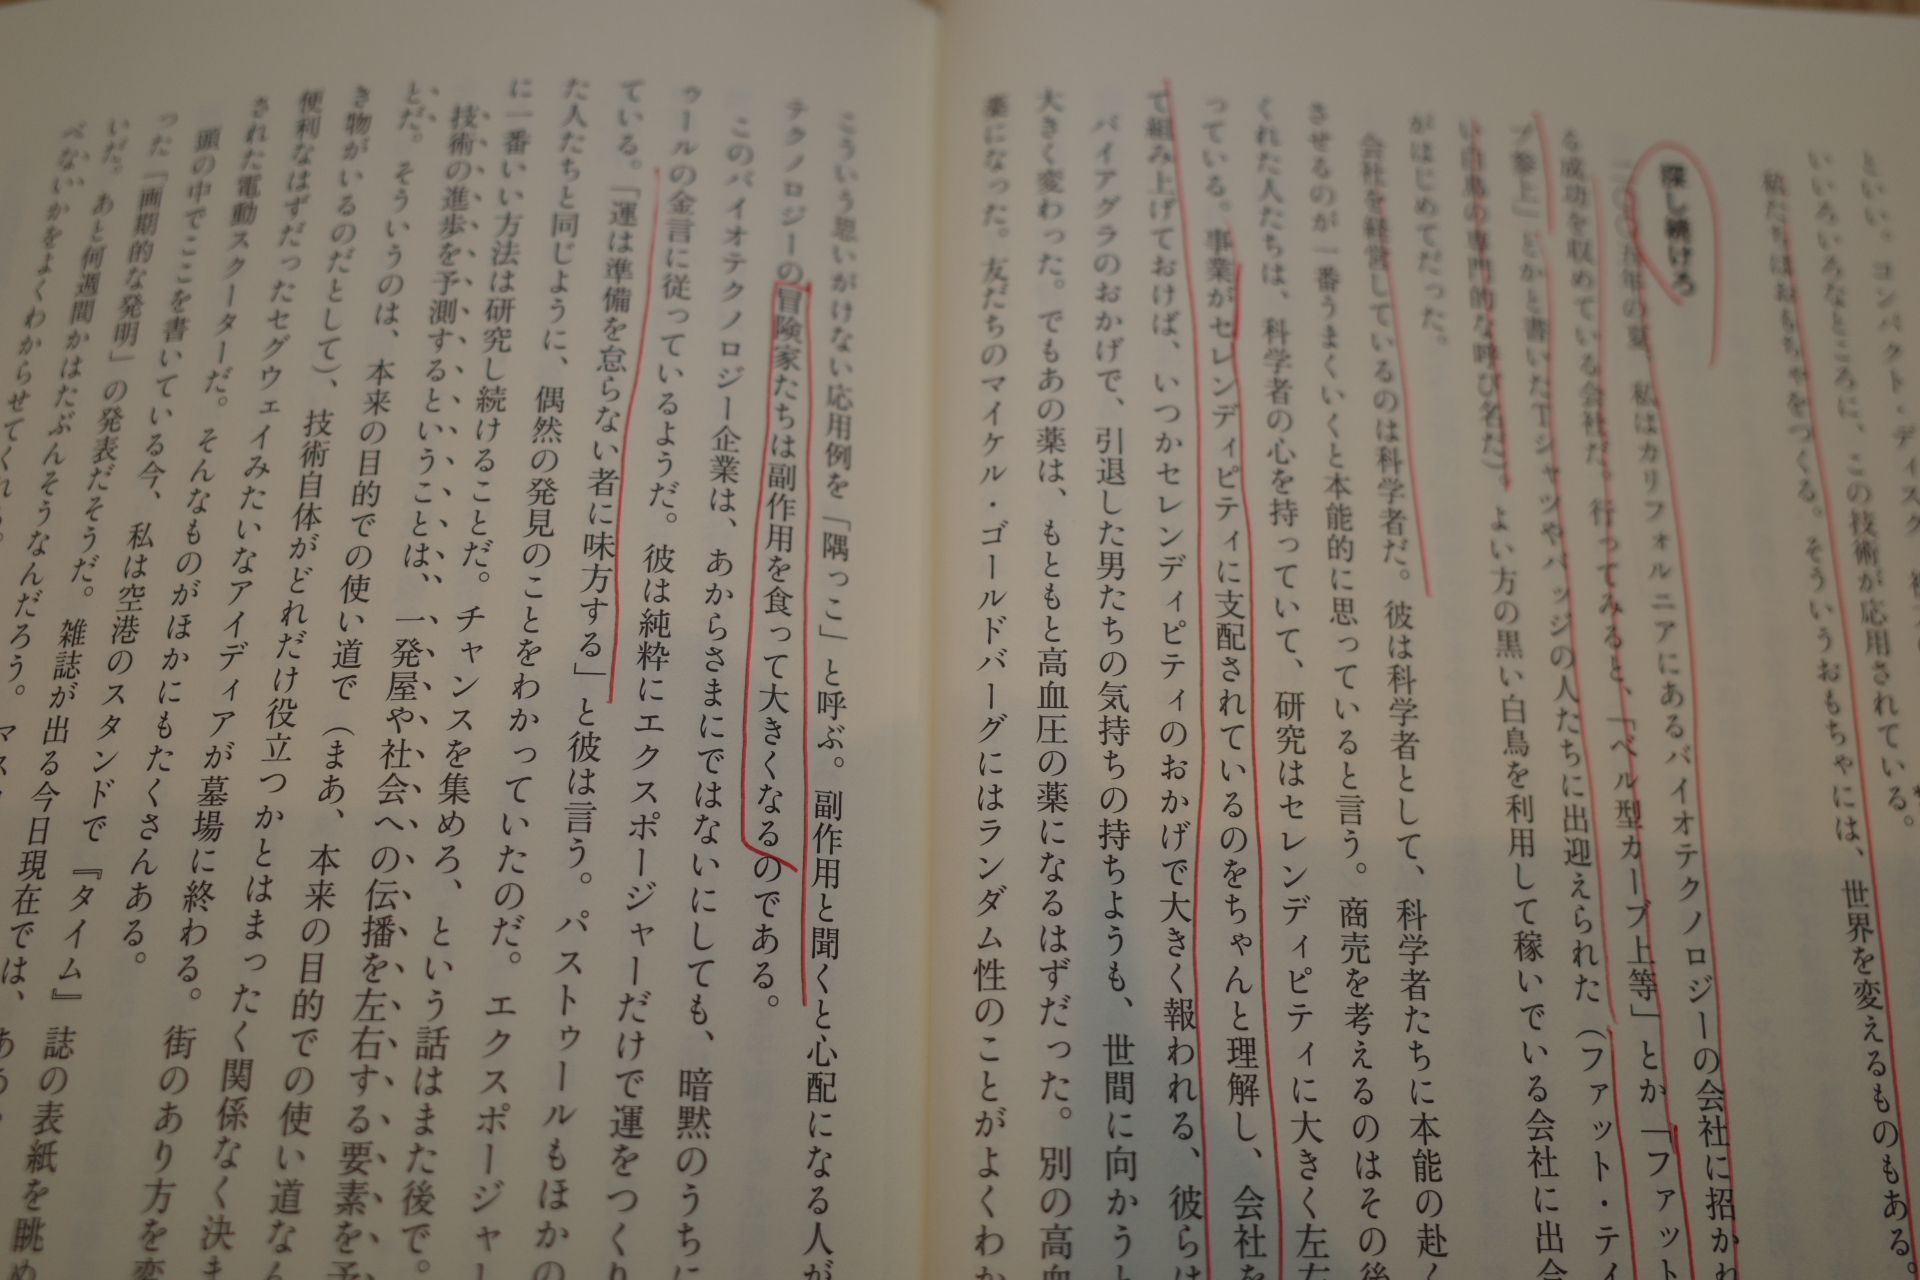 といい。コンパクト・ディスク
いいろいろなところに、この技術が応用されている。
私たちはおもちゃをつくる。そういうおもちゃには、世界を変えるものもある。
探し続けろ
二〇〇五年の夏、私はカリフォルニアにあるバイオテクノロジーの会社に招かれ
る成功を収めている会社だ。行ってみると、「ベル型カーブ上等」とか「ファット
プ参上」とかと書いたTシャツやバッジの人たちに出迎えられた（ファット・テイ
い白鳥の専門的な呼び名だ）。よい方の黒い白鳥を利用して稼いでいる会社に出会
がはじめてだった。
会社を経営しているのは科学者だ。彼は科学者として、科学者たちに本能の赴く
させるのが一番うまくいくと本能的に思っていると言う。商売を考えるのはその後
くれた人たちは、科学者の心を持っていて、研究はセレンディピティに大きく左右
っている。事業がセレンディピティに支配されているのをちゃんと理解し、会社を
て組み上げておけば、いつかセレンディピティのおかげで大きく報われる、彼らは
バイアグラのおかげで、引退した男たちの気持ちの持ちようも、世間に向かうと
大きく変わった。でもあの薬は、もともと高血圧の薬になるはずだった。別の高血
薬になった。友だちのマイケル・ゴールドバーグにはランダム性のことがよくわか
こういう思いがけない応用例を「隅っこ」と呼ぶ。副作用と聞くと心配になる人が
テクノロジーの冒険家たちは副作用を食って大きくなるのである。
このバイオテクノロジー企業は、あからさまにではないにしても、暗黙のうちに
ゥールの金言に従っているようだ。彼は純粋にエクスポージャーだけで運をつくり
ている。「運は準備を怠らない者に味方する」と彼は言う。パストゥールもほかの
た人たちと同じように、偶然の発見のことをわかっていたのだ。エクスポージャー
に一番いい方法は研究し続けることだ。チャンスを集めろ、という話はまた後で。
技術の進歩を予測するということは、一発屋や社会への伝播を左右する要素を予
とだ。そういうのは、本来の目的での使い道で（まあ、本来の目的での使い道なん
き物がいるのだとして）、技術自体がどれだけ役立つかとはまったく関係なく決ま
便利なはずだったセグウェイみたいなアイディアが墓場に終わる。街のあり方を変
された電動スクーターだ。そんなものがほかにもたくさんある。
頭の中でここを書いている今、私は空港のスタンドで『タイム』誌の表紙を眺め
った「画期的な発明」の発表だそうだ。雑誌が出る今日現在では、
いだ。あと何週間かはたぶんそうなんだろう。
べないかをよくわからせてくれる。